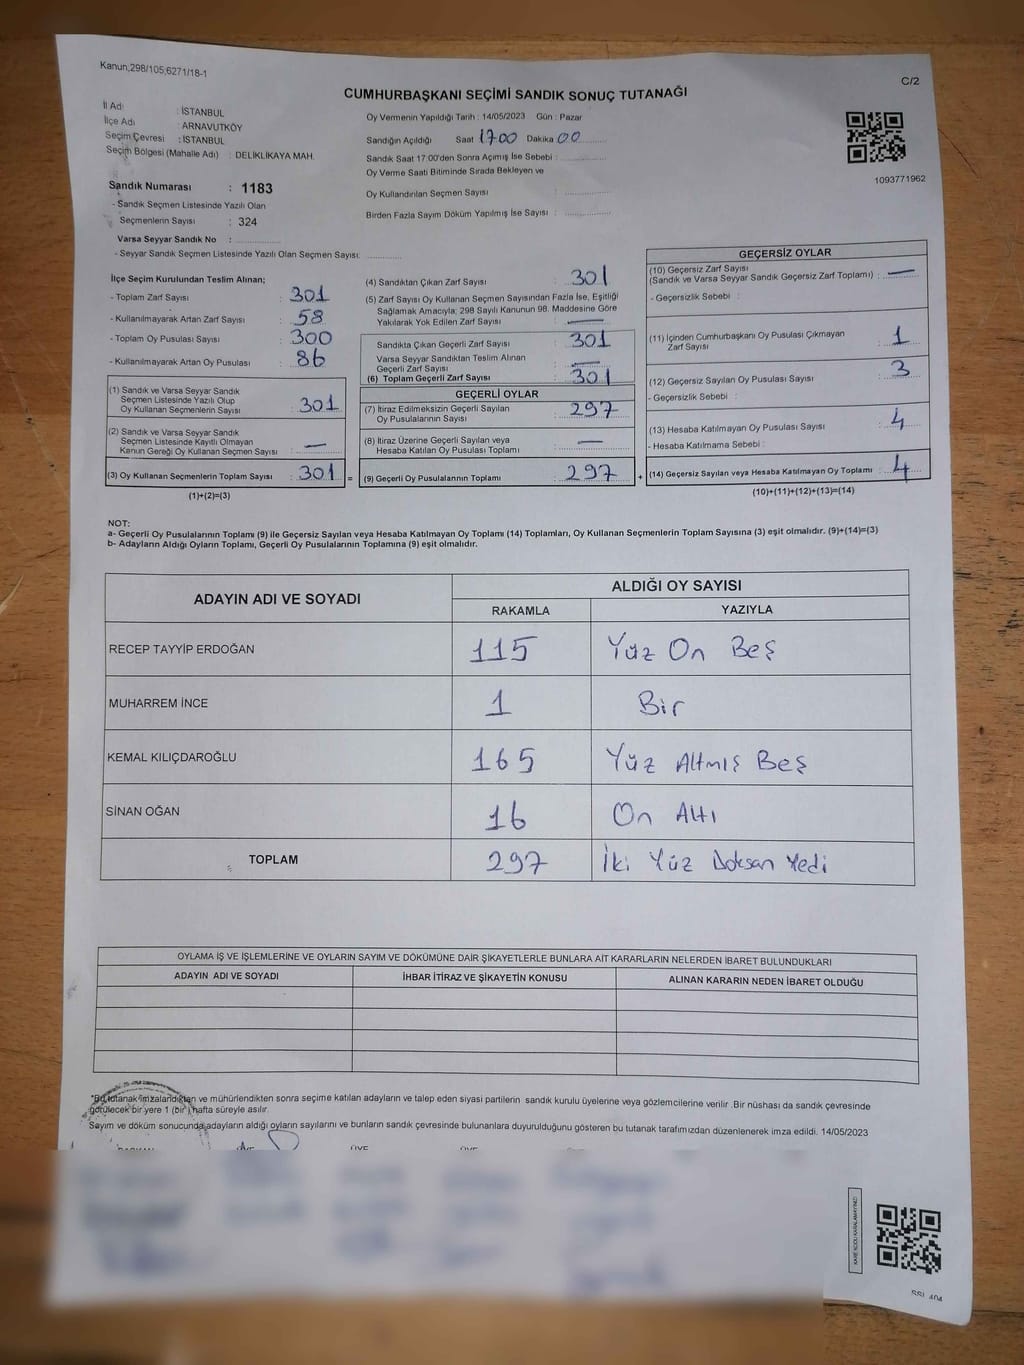 Kanun;298/105;6271/18-1
C/2
CUMHURBAŞKANI SEÇİMİ SANDIK SONUÇ TUTANAĞI
İl Adı : İSTANBUL
İlçe Adı : ARNAVUTKÖY
Seçim Çevresi : İSTANBUL
Seçim Bölgesi (Mahalle Adı) : DELİKLİKAYA MAH.
Sandık Numarası : 1183
- Sandık Seçmen Listesinde Yazılı Olan
Seçmenlerin Sayısı : 324
Varsa Seyyar Sandık No :
- Seyyar Sandık Seçmen Listesinde Yazılı Olan Seçmen Sayısı:
Oy Vermenin Yapıldığı Tarih : 14/05/2023 Gün : Pazar
Sandığın Açıldığı Saat 1700 Dakika 00
Sandık Saat 17:00'den Sonra Açımış İse Sebebi :
Oy Verme Saati Bitiminde Sırada Bekleyen ve
Oy Kullandırılan Seçmen Sayısı :
Birden Fazla Sayım Döküm Yapılmış İse Sayısı :
1093771962
İlçe Seçim Kurulundan Teslim Alınan;
- Toplam Zarf Sayısı : 301
- Kullanılmayarak Artan Zarf Sayısı : 58
- Toplam Oy Pusulası Sayısı : 300
- Kullanılmayarak Artan Oy Pusulası : 86
(1) Sandık ve Varsa Seyyar Sandık
Seçmen Listesinde Yazılı Olup
Oy Kullanan Seçmenlerin Sayısı : 301
(2) Sandık ve Varsa Seyyar Sandık
Seçmen Listesinde Kayıtlı Olmayan
Kanun Gereği Oy Kullanan Seçmen Sayısı : —
(3) Oy Kullanan Seçmenlerin Toplam Sayısı : 301 =
(1)+(2)=(3)
(4) Sandıktan Çıkan Zarf Sayısı : 301
(5) Zarf Sayısı Oy Kullanan Seçmen Sayısından Fazla İse, Eşitliği
Sağlamak Amacıyla; 298 Sayılı Kanunun 98. Maddesine Göre
Yakılarak Yok Edilen Zarf Sayısı : —
Sandıkta Çıkan Geçerli Zarf Sayısı : 301
Varsa Seyyar Sandıktan Teslim Alınan
Geçerli Zarf Sayısı : —
(6) Toplam Geçerli Zarf Sayısı : 301
GEÇERLİ OYLAR
(7) İtiraz Edilmeksizin Geçerli Sayılan
Oy Pusulalarının Sayısı : 297
(8) İtiraz Üzerine Geçerli Sayılan veya
Hesaba Katılan Oy Pusulası Toplamı : —
(9) Geçerli Oy Pusulalarının Toplamı : 297 +
GEÇERSİZ OYLAR
(10) Geçersiz Zarf Sayısı
(Sandık ve Varsa Seyyar Sandık Geçersiz Zarf Toplamı) : —
- Geçersizlik Sebebi :
(11) İçinden Cumhurbaşkanı Oy Pusulası Çıkmayan
Zarf Sayısı : 1
(12) Geçersiz Sayılan Oy Pusulası Sayısı : 3
- Geçersizlik Sebebi :
(13) Hesaba Katılmayan Oy Pusulası Sayısı : 4
- Hesaba Katılmama Sebebi :
(14) Geçersiz Sayılan veya Hesaba Katılmayan Oy Toplamı : 4
(10)+(11)+(12)+(13)=(14)
NOT:
a- Geçerli Oy Pusulalarının Toplamı (9) ile Geçersiz Sayılan veya Hesaba Katılmayan Oy Toplamı (14) Toplamları, Oy Kullanan Seçmenlerin Toplam Sayısına (3) eşit olmalıdır. (9)+(14)=(3)
b- Adayların Aldığı Oyların Toplamı, Geçerli Oy Pusulalarının Toplamına (9) eşit olmalıdır.
ADAYIN ADI VE SOYADI
ALDIĞI OY SAYISI
RAKAMLA YAZIYLA
RECEP TAYYİP ERDOĞAN 115 Yüz On Beş
MUHARREM İNCE 1 Bir
KEMAL KILIÇDAROĞLU 165 Yüz Altmış Beş
SİNAN OĞAN 16 On Altı
TOPLAM 297 İki Yüz Doksan Yedi
OYLAMA İŞ VE İŞLEMLERİNE VE OYLARIN SAYIM VE DÖKÜMÜNE DAİR ŞİKAYETLERLE BUNLARA AİT KARARLARIN NELERDEN İBARET BULUNDUKLARI
ADAYIN ADI VE SOYADI İHBAR İTİRAZ VE ŞİKAYETİN KONUSU ALINAN KARARIN NEDEN İBARET OLDUĞU
*Bu tutanak imzalandıktan ve mühürlendikten sonra seçime katılan adayların ve talep eden siyasi partilerin sandık kurulu üyelerine veya gözlemcilerine verilir .Bir nüshası da sandık çevresinde
görülecek bir yere 1 (bir ) hafta süreyle asılır.
Sayım ve döküm sonucunda adayların aldığı oyların sayılarını ve bunların sandık çevresinde bulunanlara duyurulduğunu gösteren bu tutanak tarafımızdan düzenlenerek imza edildi. 14/05/2023
KARE KODU KARALAMAYINIZ!